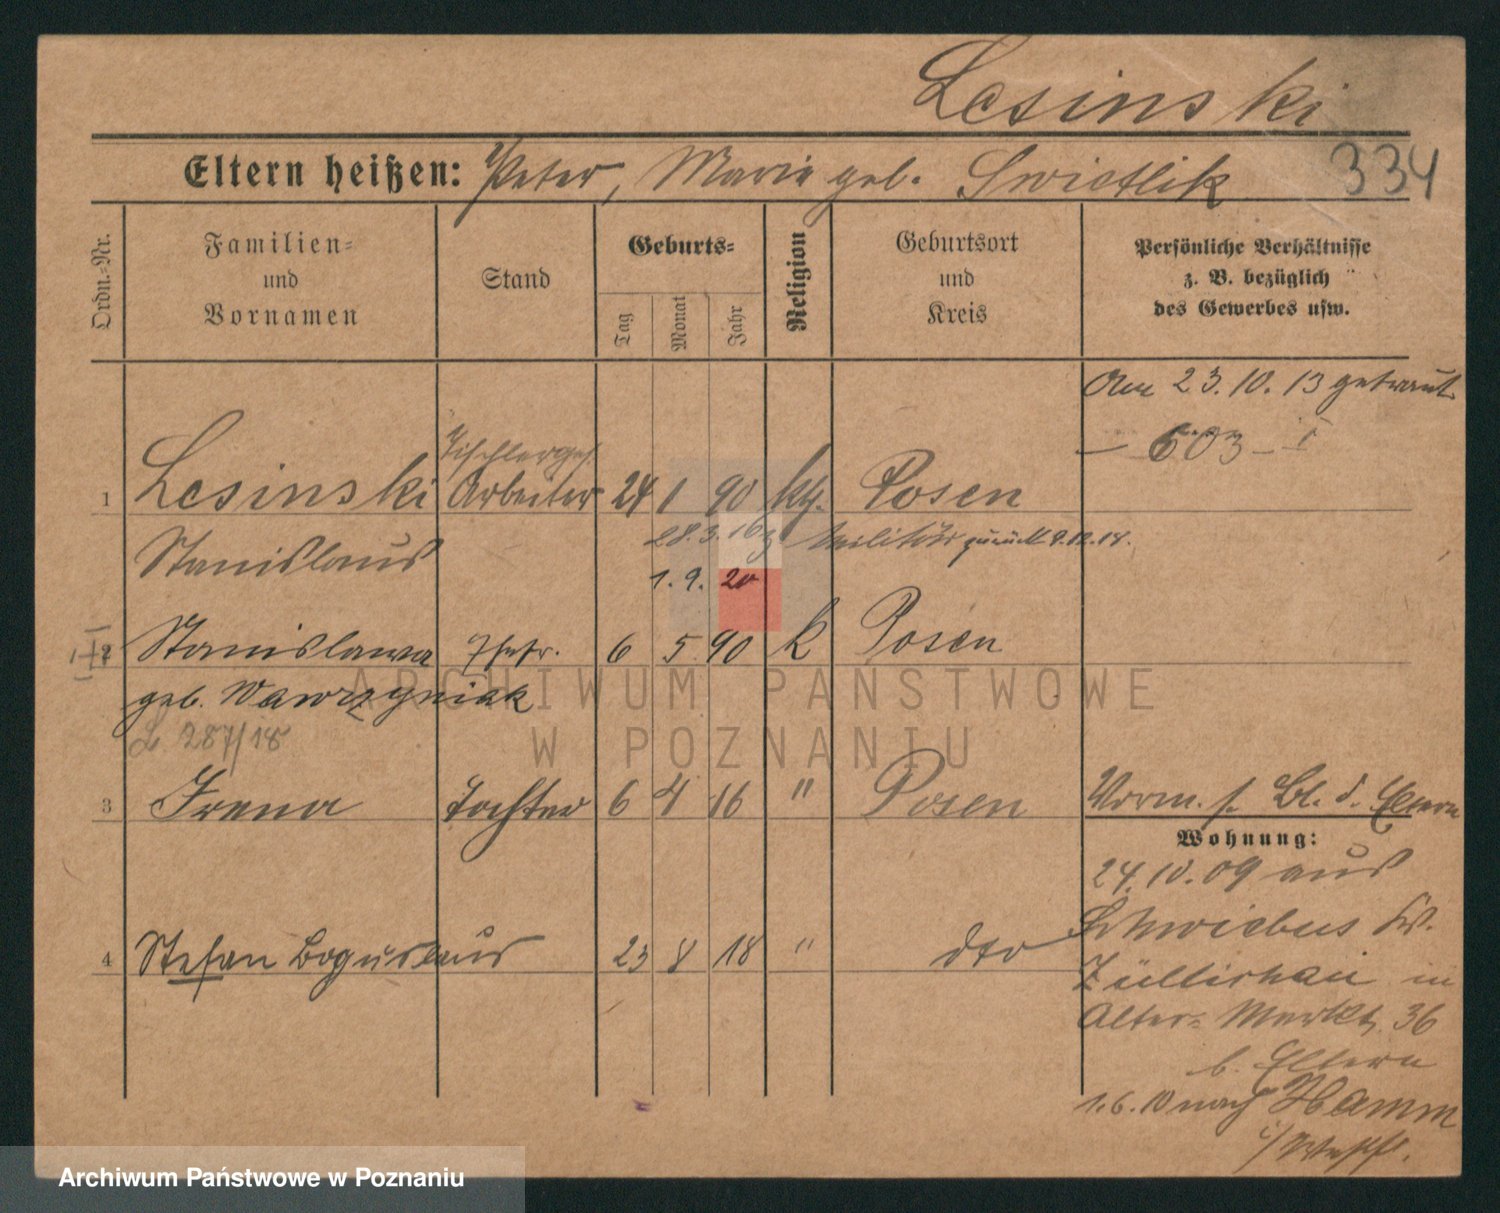 Lesinski
Eltern heißen: Peter, Marie geb. Swietlik 334
Ordn.-Nr.
Familien-
und
Vornamen
Stand
Geburts-
Tag
Monat
Jahr
Religion
Geburtsort
und
Kreis
Persönliche Verhältnisse
z. B. bezüglich
des Gewerbes usw.
Am 23.10.13 getraut
— 603 — I
Tischlerges.
1 Lesinski Arbeiter 24 1 90 kth. Posen
Stanislaus 28.3.16 z Militär zurück 9.12.18.
1.9.20
2 Stanislawa Ehefr. 6 5 90 k Posen
geb. Wawrzyniak
L 287/18
3 Irena Tochter 6 4 16 " Posen Vorm. s. Bl. d. Eltern
Wohnung:
24.10.09 aus
4 Stefan Boguslaus 23 8 18 " dto Schwiebus Kr.
Züllichau in
Alter-Markt 36
b. Eltern
1.6.10 nach Hamm
i/Westf.
ARCHIWUM PAŃSTWOWE
W POZNANIU
Archiwum Państwowe w Poznaniu